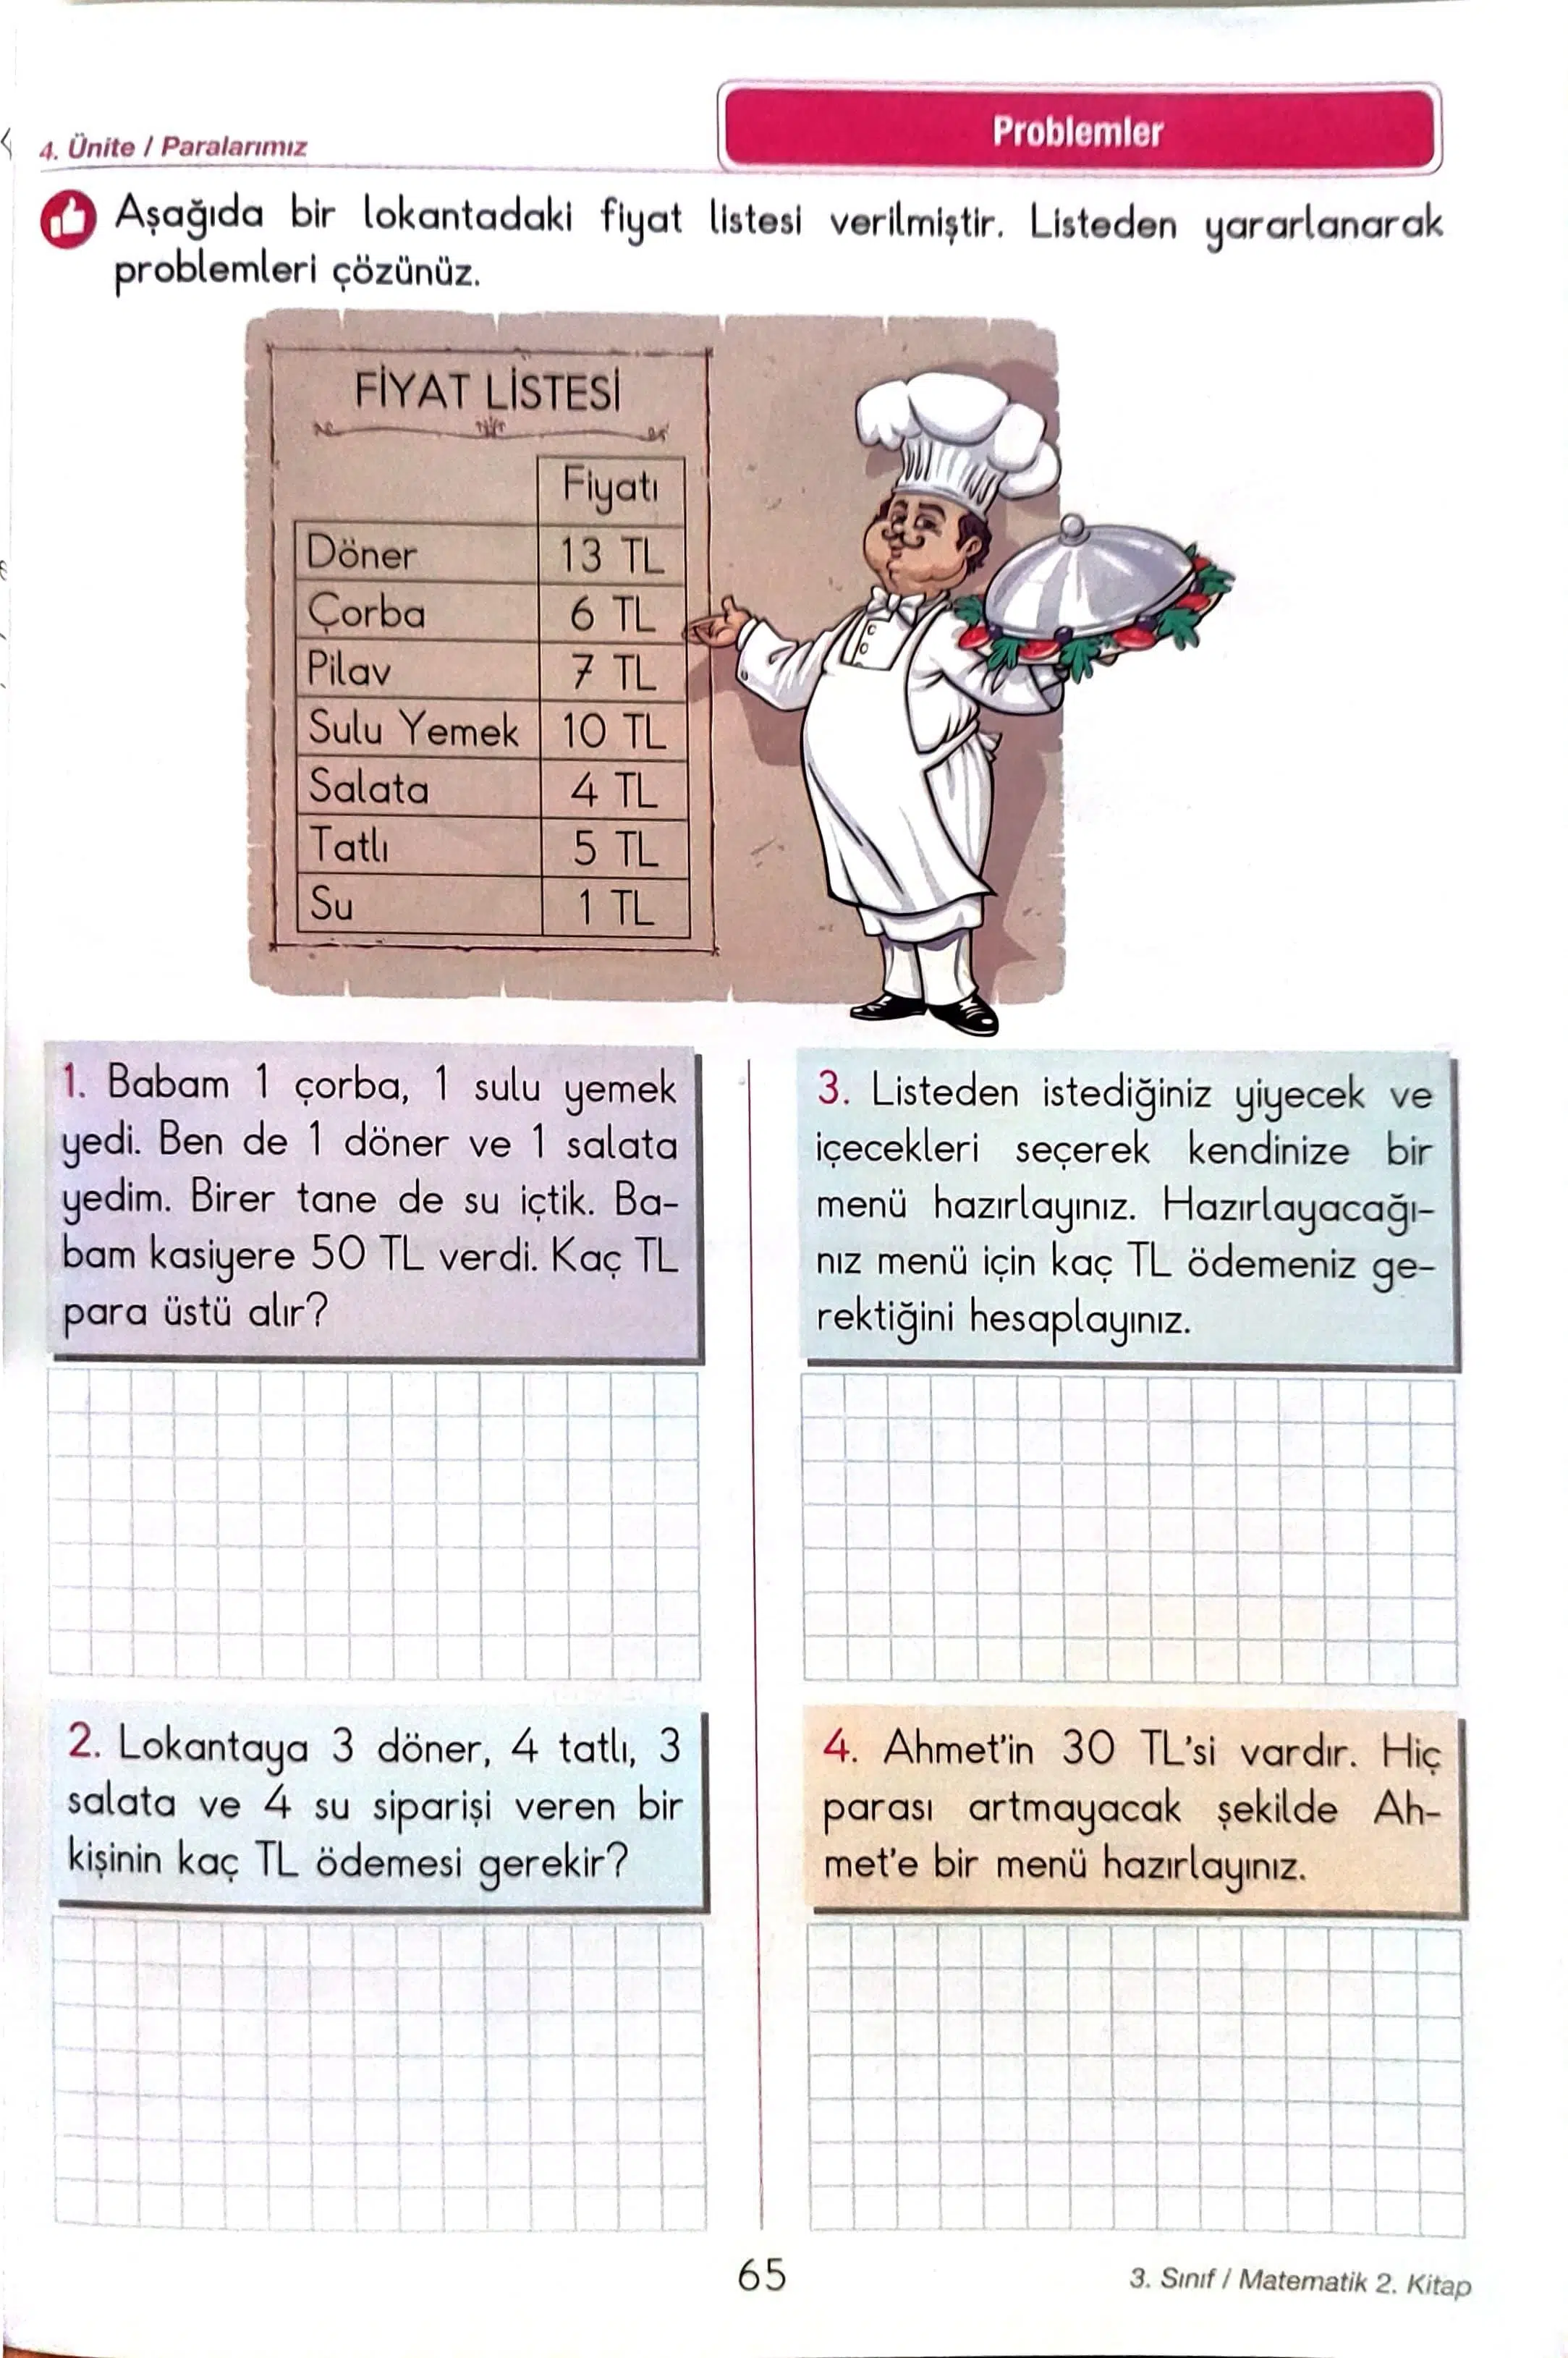 4. Ünite / Paralarımız
Problemler
Aşağıda bir lokantadaki fiyat listesi verilmiştir. Listeden yararlanarak
problemleri çözünüz.
FİYAT LİSTESİ
Fiyatı
Döner 13 TL
Çorba 6 TL
Pilav 7 TL
Sulu Yemek 10 TL
Salata 4 TL
Tatlı 5 TL
Su 1 TL
1. Babam 1 çorba, 1 sulu yemek
yedi. Ben de 1 döner ve 1 salata
yedim. Birer tane de su içtik. Ba-
bam kasiyere 50 TL verdi. Kaç TL
para üstü alır?
2. Lokantaya 3 döner, 4 tatlı, 3
salata ve 4 su siparişi veren bir
kişinin kaç TL ödemesi gerekir?
3. Listeden istediğiniz yiyecek ve
içecekleri seçerek kendinize bir
menü hazırlayınız. Hazırlayacağı-
nız menü için kaç TL ödemeniz ge-
rektiğini hesaplayınız.
4. Ahmet'in 30 TL'si vardır. Hiç
parası artmayacak şekilde Ah-
met'e bir menü hazırlayınız.
65
3. Sınıf / Matematik 2. Kitap